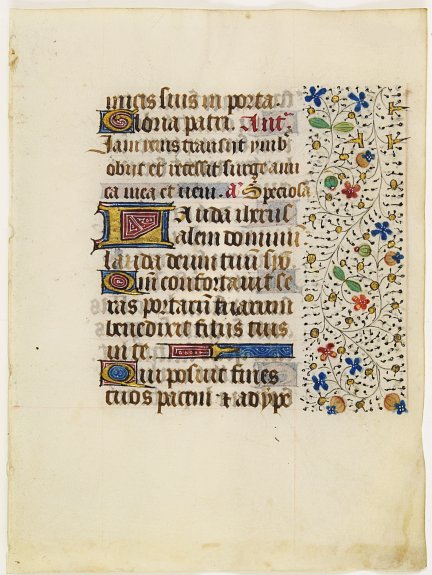 micis suis in porta.
Gloria patri. Ant.
Iam yems transiit ymb
obiit et recessit surge ami
ca mea et veni. a Speciosa
Lauda iherus
alem dominum
lauda deum tuum syō
Qm confortauit se
ras portarum tuarum
benedixit filiis tuis
in te.
Qui posuit fines
tuos pacem et adype